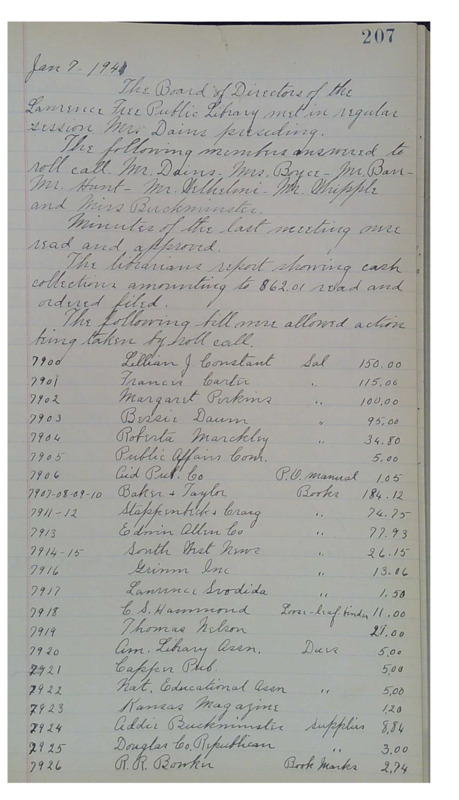 207
Jan 7. 1941
The Board of Directors of the
Lawrence Free Public Library met in regular
session Mrs. Dains presiding.
The following members answered to
roll call Mr. Dains. Mrs. Boyce - Mr. Barr -
Mr. Hunt - Mr. Wilhelmi - Mr. Whipple
and Miss Buckminster.
Minutes of the last meeting were
read and approved.
The librarians report showing cash
collections amounting to 862.01 read and
ordered filed.
The following bill were allowed action
being taken by roll call.
7900 Lillian J Constant Sal 150.00
7901 Francis Carter " 115.00
7902 Margaret Perkins " 100.00
7903 Bessie Daum " 95.00
7904 Roberta Marckley " 34.80
7905 Public Affairs Com. 5.00
7906 Aid Pub. Co P.O. manual 1.05
7907-08-09-10 Baker & Taylor Books 184.12
7911-12 & Craig " 74.75
7913 Edwin Allen Co " 77.93
7914-15 South West News " 26.15
7916 Grimm Inc " 13.06
7917 Lawrence Svodida " 1.50
7918 C.S. Hammond Loose-leaf binder 11.00
7919 Thomas Nelson 21.00
7920 Am. Library Assn. Dues 5.00
7921 Capper Pub. 5.00
7922 Nat. Educational Assn " 5.00
7923 Kansas Magazine 1.20
7924 Addie Buckminster supplies 8.84
7925 Douglas Co. Republican " 3.00
7926 R.R. Bowker Book Marks 2.74